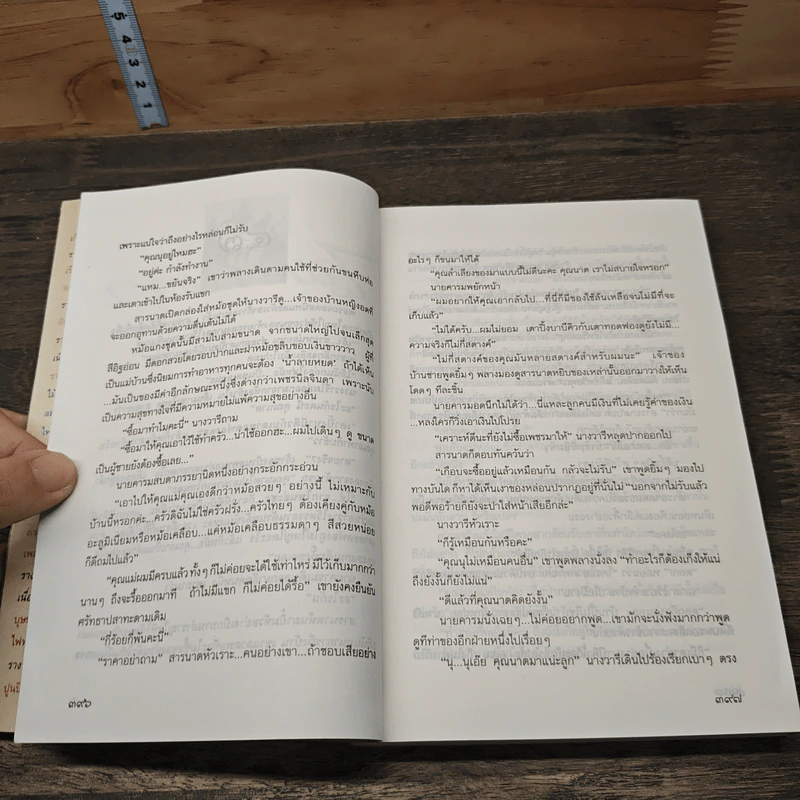 5
4
3
2
1
เพราะแน่ใจว่าถึงอย่างไรหล่อนก็ไม่รับ
“คุณนุอยู่ไหมฮะ”
“อยู่ค่ะ กำลังทำงาน”
“แหม...ขยันจริง” เขาว่าพลางเดินตามคนใช้ที่ช่วยกันขนหีบห่อ
และเตาเข้าไปในห้องรับแขก
สารนาตเปิดกล่องใส่หม้อชุดให้นางวารีดู...เจ้าของบ้านหญิงอดที่
จะออกอุทานด้วยความตื่นเต้นไม่ได้
หม้อแกงชุดนั้นมีสามใบสามขนาด จากขนาดใหญ่ไปจนเล็กสุด
สีอิฐอ่อน มีดอกสวยโดยรอบปากและฝาหม้อขลิบขอบเงินขาววาว ผู้ที่
เป็นแม่บ้านซึ่งนิยมการทำอาหารทุกคนจะต้อง ‘น้ำลายหยด’ ถ้าได้เห็น
...มันเป็นของมีค่าอีกลักษณะหนึ่งซึ่งต่างกว่าเพชรนิลจินดา เพราะนับ
เป็นความสุขทางใจที่มีความหมายไม่แพ้ความสุขอย่างอื่น
“ซื้อมาทำไมคะนี่” นางวารีถาม
“ซื้อมาให้คุณเอาไว้ใช้ทำครัว...น่าใช้ออกฮะ...ผมไปเดินๆ ดู ขนาด
เป็นผู้ชายยังต้องซื้อเลย...”
นายคารมสบตาภรรยานิดหนึ่งอย่างกระอักกระอ่วน
“เอาไปให้คุณแม่คุณเองดีกว่าหม้อสวยๆ อย่างนี้ ไม่เหมาะกับ
บ้านนี้หรอกค่ะ...ครัวดีฉันไม่ใช่ครัวฝรั่ง...ครัวไทยๆ ต้องเคียงคู่กับหม้อ
อะลูมิเนียมหรือหม้อเคลือบ...แค่หม้อเคลือบธรรมดาๆ สีสวยหน่อย
ก็ดีถมไปแล้ว”
“คุณแม่ผมมีครบแล้ว ทั้งๆ ก็ไม่ค่อยจะได้ใช้เท่าไหร่ มีไว้เก็บมากกว่า
นานๆ ถึงจะรื้อออกมาที ถ้าไม่มีแขก ก็ไม่ค่อยได้รื้อ” เขายังคงยืนยัน
ศรัทธาปสาทะตามเดิม
“กี่ร้อยกี่พันคะนี่”
“ราคาอย่าถาม” สารนาตหัวเราะ...คนอย่างเขา...ถ้าชอบเสียอย่าง
๓๙๖
อะไรๆ ก็ขนมาให้ได้
“คุณลำเลียงของมาแบบนี้ไม่ดีนะคะ คุณนาต เราไม่สบายใจหรอก”
นายคารมพยักหน้า
“ผมอยากให้คุณเอากลับไป...ที่นี่ก็มีของใช้ล้นเหลือจนไม่มีที่จะ
เก็บแล้ว”
“ไม่ได้ครับ...ผมไม่ยอม เตาปิ้งบาบีคิวกับเตาทอดฟองดูยังไม่มี...
ความจริงก็ไม่กี่สตางค์”
“ไม่กี่สตางค์ของคุณมันหลายสตางค์สำหรับผมนะ” เจ้าของ
บ้านชายพูดยิ้มๆ พลางมองดูสารนาตหยิบของเหล่านั้นออกมาวางให้เห็น
โดดๆ ทีละชิ้น
นายคารมอดนึกไม่ได้ว่า...นี่แหละลูกคนมีเงินที่ไม่เคยรู้ค่าของเงิน
...หลงใครก็วิ่งเอาเงินไปโปรย
“เคราะห์ดีนะที่ยังไม่ซื้อเพชรมาให้” นางวารีหลุดปากออกไป
สารนาตก็ตอบทันควันว่า
“เกือบจะซื้ออยู่แล้วเหมือนกัน กลัวจะไม่รับ” เขาพูดยิ้มๆ มองไป
ทางบันได ก็หาได้เห็นเงาของหล่อนปรากฏอยู่ที่นั่นไม่ “นอกจากไม่รับแล้ว
พอดีพอร้ายก็ยังจะปาใส่หน้าเสียอีกล่ะ”
นางวารีหัวเราะ
“ก็รู้เหมือนกันหรือคะ”
“คุณนุไม่เหมือนคนอื่น” เขาพูดพลางนั่งลง “ทำอะไรก็ต้องเกึงให้แน่
ถึงยังงั้นก็ยังไม่แน่”
“ดีแล้วที่คุณนาตคิดยังงั้น”
นายคารมนั่งเฉยๆ...ไม่ค่อยอยากพูด...เขามักจะนั่งฟังมากกว่าพูด
ดูทีท่าของอีกฝ่ายหนึ่งไปเรื่อยๆ
“นุ...นุเอ๊ย คุณนาตมาแน่ะลูก” นางวารีเดินไปร้องเรียกเบาๆ ตรง
๓๙๗